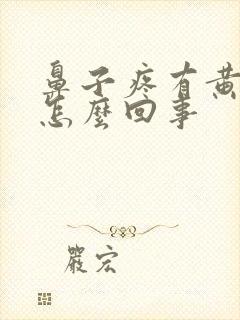 鼻子疼有黄
怎麼回事
嚴宏